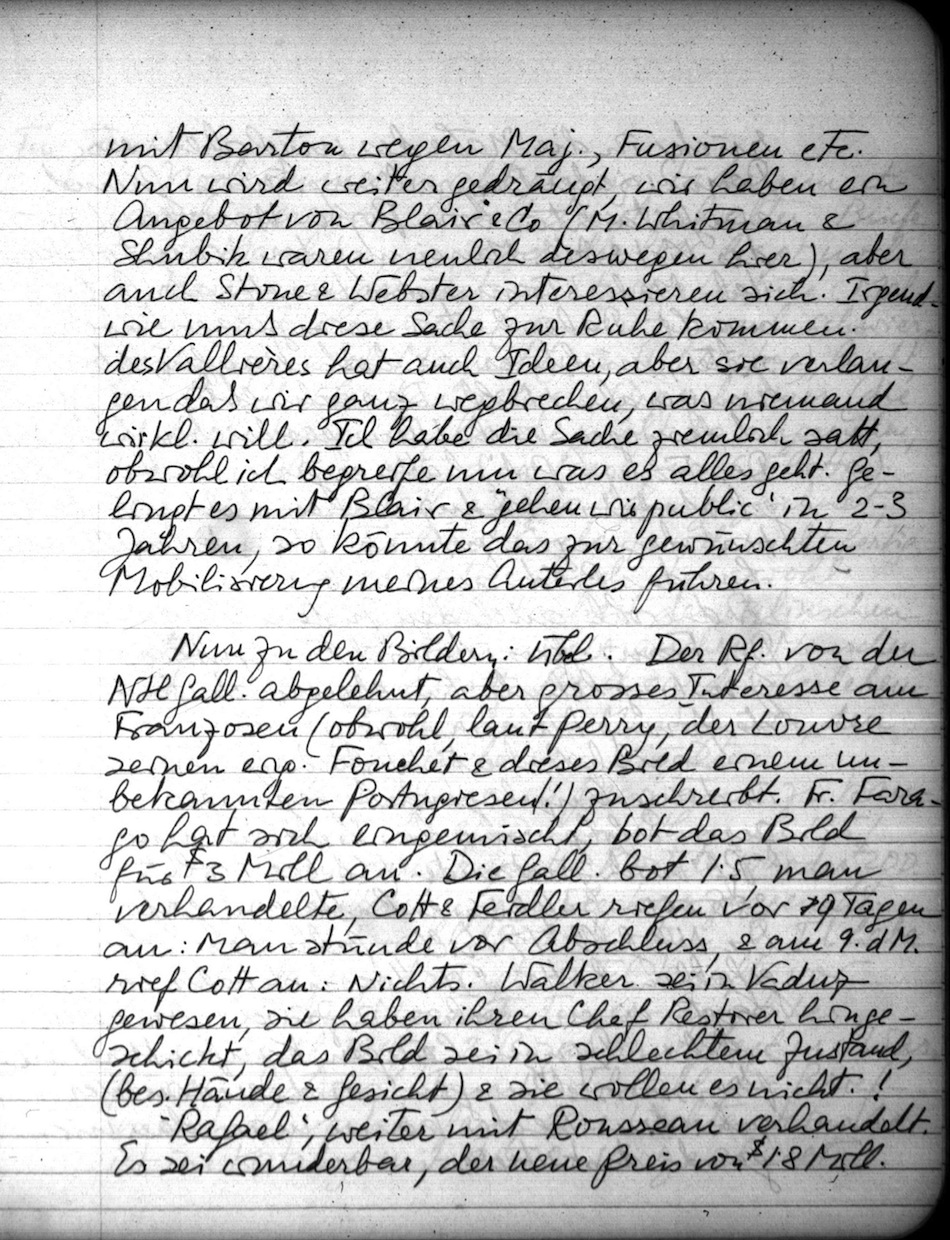 mit Barton wegen Maj., Fusionen etc.
Nun wird weiter gedrängt, wir haben ein
Angebot von Blair & Co (M. Whitman &
Shubik waren neulich deswegen hier), aber
auch Stone & Webster interessieren sich. Irgend-
wie muß diese Sache zur Ruhe kommen.
desVallières hat auch Ideen, aber sie verlan-
gen daß wir ganz wegbrechen, was niemand
wirkl. will. Ich habe die Sache ziemlich satt,
obwohl ich begreife um was es alles geht. Ge-
lingt es mit Blair & "gehen wir public" in 2-3
Jahren, so könnte das zur gewünschten
Mobilisierung meines Anteiles führen.
Nun zu den Bildern: Übel. Der Rf. von der
Ntl Gall. abgelehnt, aber grosses Interesse am
Franzosen (obwohl, laut Perry, der Louvre
seinen eig. Fouchet & dieses Bild einem un-
bekannten Portugiesen(!) zuschreibt. Fr. Fara-
go hat sich eingemischt, bot das Bild
für $3 Mill an. Die Gall. bot 1.5, man
verhandelte, Cott & Feidler riefen vor Tagen
an: Man stünde vor Abschluss, & am 9. d M.
rief Cott an: Nichts. Walker sei in Vaduz
gewesen, sie haben ihren Chef Restorer hinge-
schickt, das Bild sei in schlechtem Zustand,
(bes. Hände & Gesicht) & sie wollen es nicht.!
"Rafael", weiter mit Rousseau verhandelt.
Es sei wunderbar, der neue Preis von $1.8 Mill.